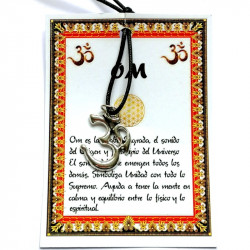 ॐ ॐ
OM
Om es la sagrada, el sonido
del gen y io del Universo
El so emergen todos los
demás. Simboliza Unidad con todo lo
Supremo. Ayuda a tener la mente en
calma y equilibrio entre lo físico y lo
espiritual.